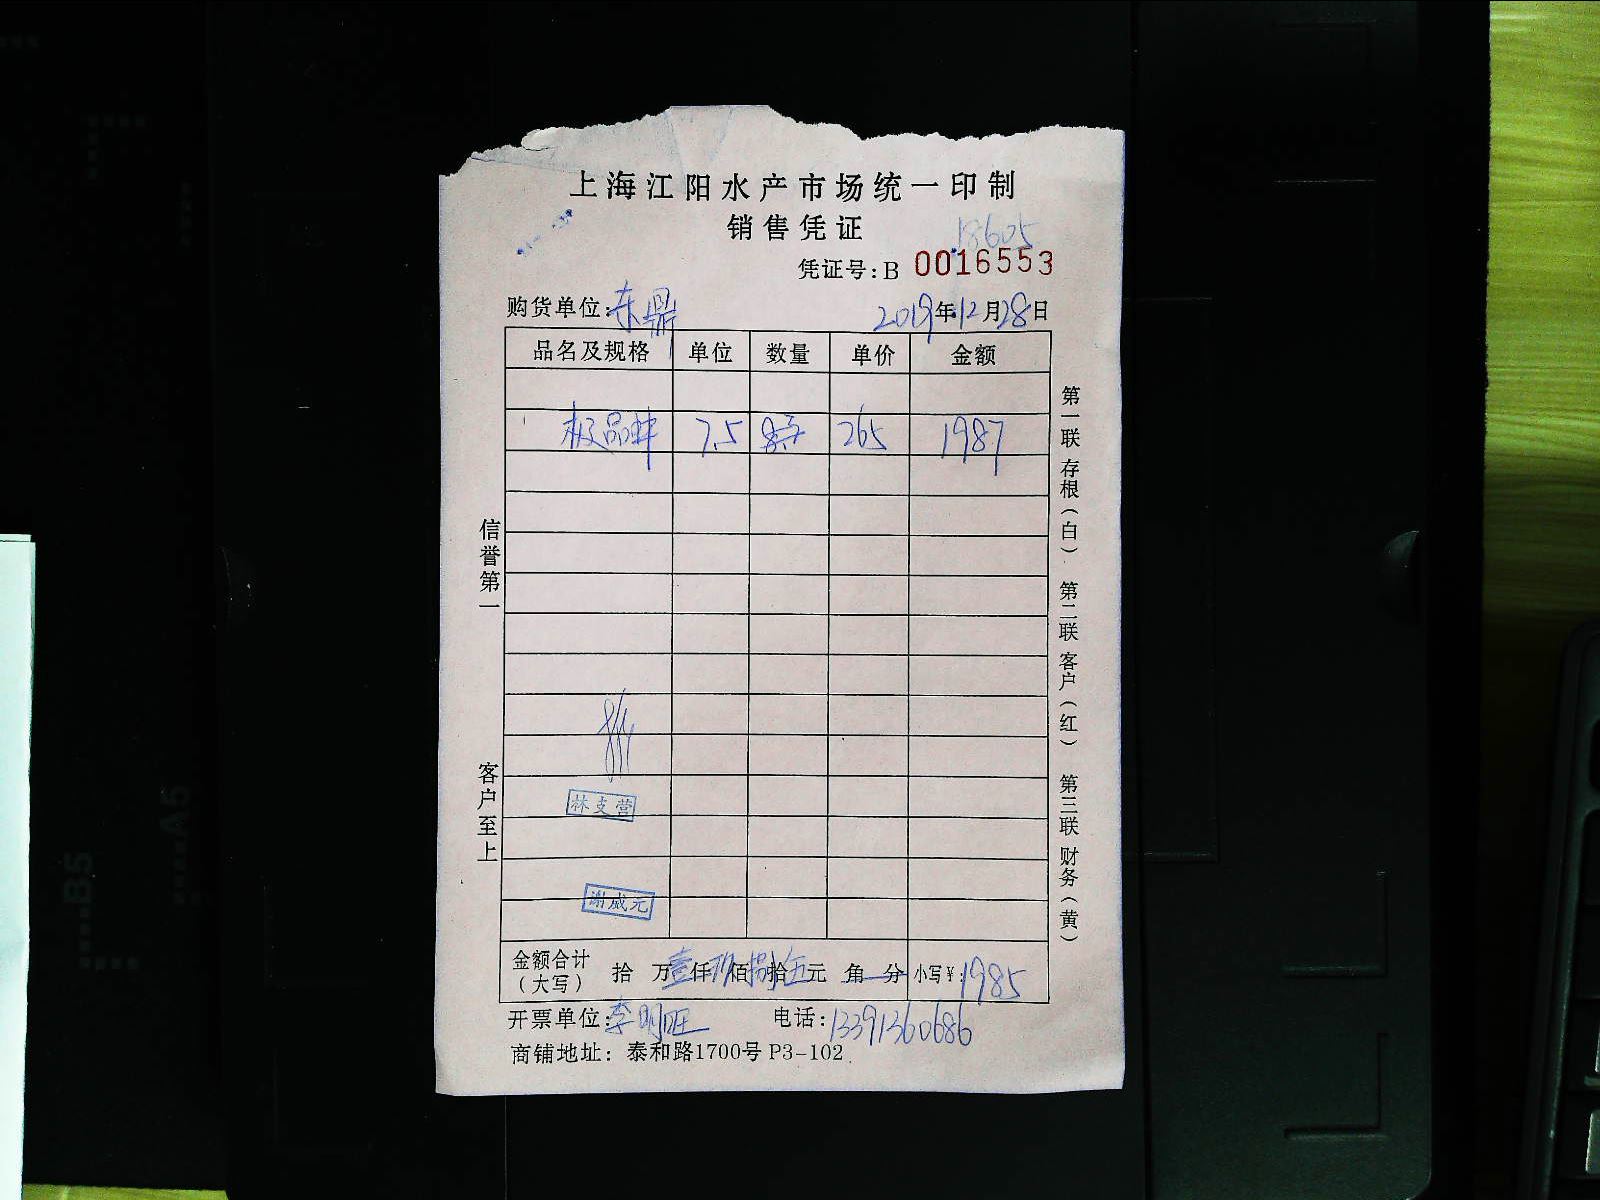 上海江阳水产市场统一印制
销售凭证
18605
凭证号:B 0016553
购货单位:东鼎 2019年12月28日
品名及规格 单位 数量 单价 金额
极品蚌 7.5 265 1987
信誉第一
客户至上
第一联 存根(白) 第二联 客户(红) 第三联 财务(黄)
林支营
谢成元
金额合计(大写) 拾 万壹仟玖佰捌拾伍元 角 分 小写¥:1985
开票单位:李明旺 电话:13391360686
商铺地址:泰和路1700号 P3-102